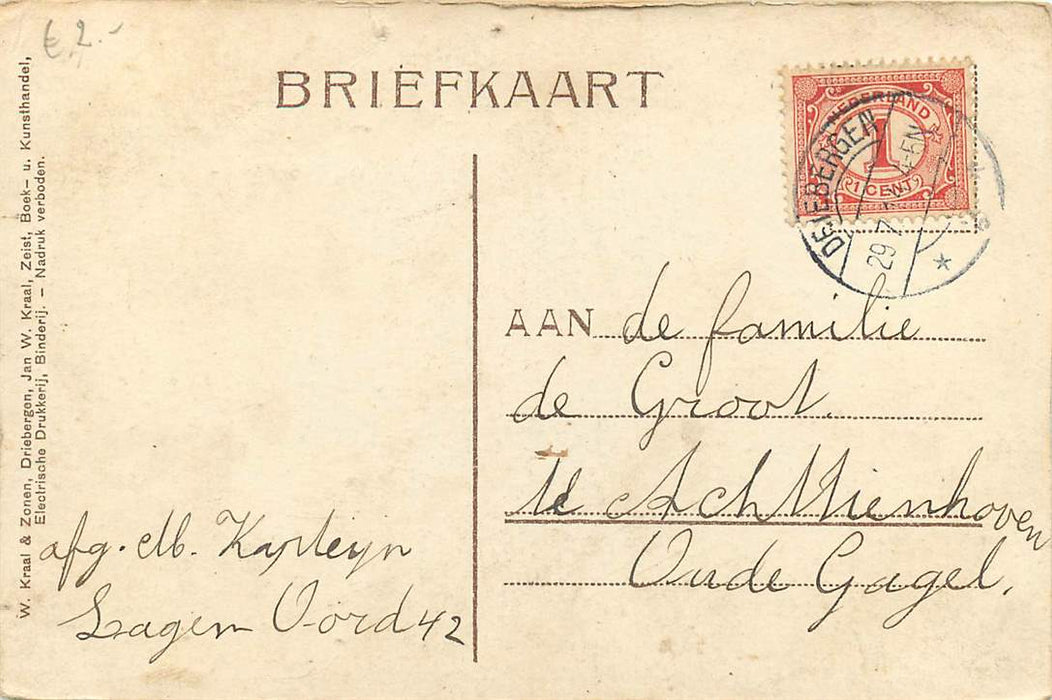 € 2.-
BRIEFKAART
W. Kraal & Zonen, Driebergen, Jan W. Kraal, Zeist, Boek- u. Kunsthandel,
Electrische Drukkerij, Binderij. — Nadruk verboden.
NEDERLAND
1
1 CENT
DRIEBERGEN
29 7 4-5N
AAN de familie
de Groot.
te Achttienhoven
Oude Gagel.
afg. M. Kapteijn
Lagen Oord 42